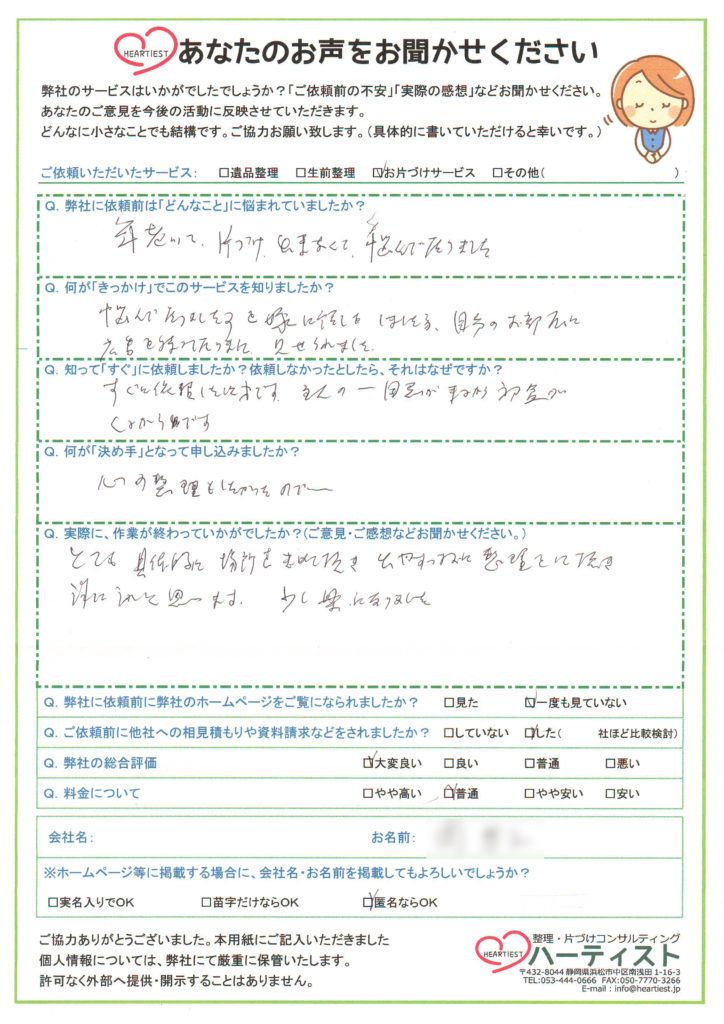 HEARTIEST あなたのお声をお聞かせください
弊社のサービスはいかがでしたでしょうか?「ご依頼前の不安」「実際の感想」などお聞かせください。
あなたのご意見を今後の活動に反映させていただきます。
どんなに小さなことでも結構です。ご協力お願い致します。(具体的に書いていただけると幸いです。)
ご依頼いただいたサービス: □遺品整理 □生前整理 ☑お片づけサービス □その他( )
Q. 弊社に依頼前は「どんなこと」に悩まれていましたか?
年老いて、片づけ 出来なくて、悩んでおりました
Q. 何が「きっかけ」でこのサービスを知りましたか?
悩んでおりました 自分のお部屋に
広告を 見せられました
Q. 知って「すぐ」に依頼しましたか?依頼しなかったとしたら、それはなぜですか?
すぐに依頼 主人の一周忌が
Q. 何が「決め手」となって申し込みましたか?
心の整理もしたかったので
Q. 実際に、作業が終わっていかがでしたか?(ご意見・ご感想などお聞かせください。)
とても 具体的に 場所を 頂き 整理 頂き
思います 少し楽になりました
Q. 弊社に依頼前に弊社のホームページをご覧になられましたか? □見た ☑一度も見ていない
Q. ご依頼前に他社への相見積もりや資料請求などをされましたか? □していない ☑した( 社ほど比較検討)
Q. 弊社の総合評価 ☑大変良い □良い □普通 □悪い
Q. 料金について □やや高い ☑普通 □やや安い □安い
会社名: お名前:
※ホームページ等に掲載する場合に、会社名・お名前を掲載してもよろしいでしょうか?
□実名入りでOK □苗字だけならOK ☑匿名ならOK
ご協力ありがとうございました。本用紙にご記入いただきました
個人情報については、弊社にて厳重に保管いたします。
許可なく外部へ提供・開示することはありません。
整理・片づけコンサルティング
HEARTIEST ハーティスト
〒432-8044 静岡県浜松市中区南浅田 1-16-3
TEL:053-444-0666 FAX:050-7770-3266
E-mail : info@heartiest.jp